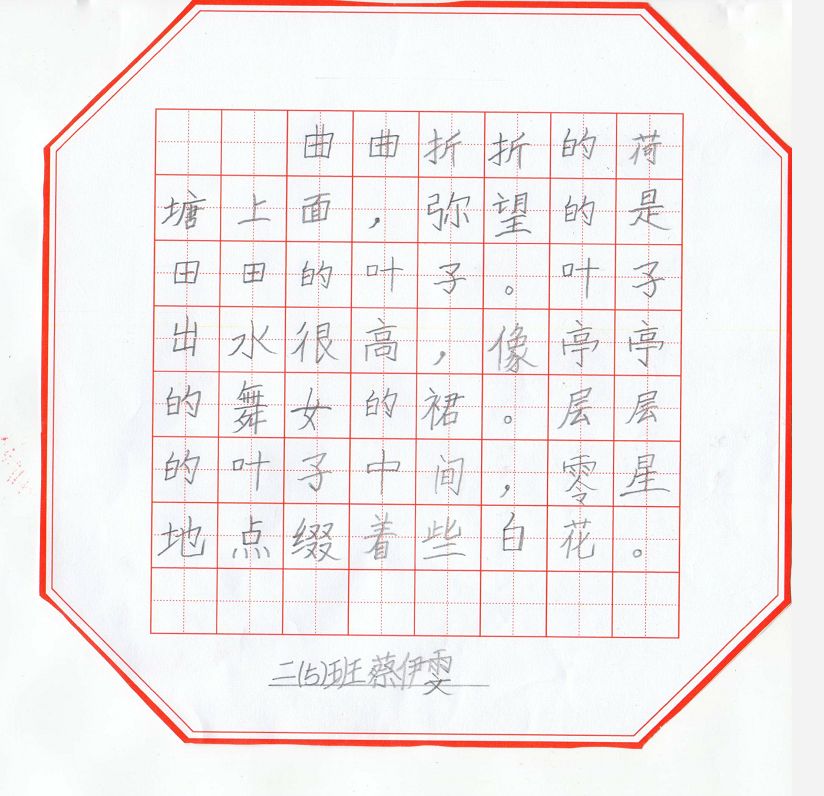 曲曲折折的荷
塘上面，弥望的是
田田的叶子。叶子
出水很高，像亭亭
的舞女的裙。层层
的叶子中间，零星
地点缀着些白花。
二(5)班蔡伊雯